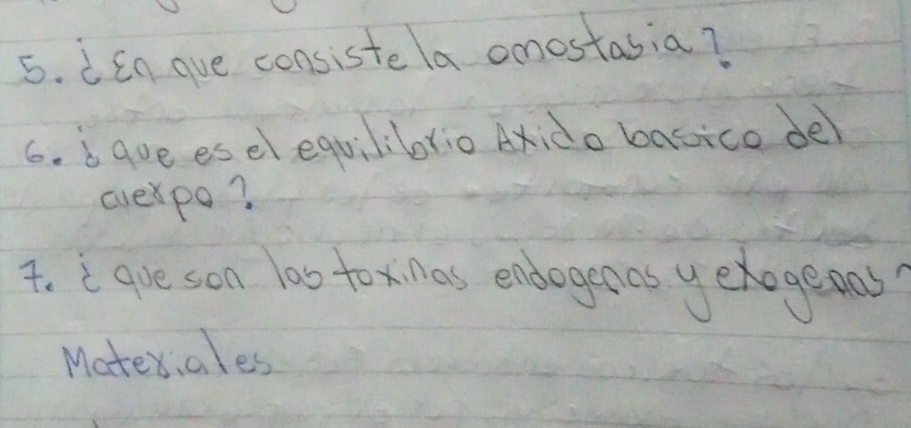 5. ¿En que consiste la omostasia?
6. ¿que es el equilibrio Axido basico del
cuerpo?
7. ¿que son las toxinas endogenas y exogenas?
Materiales